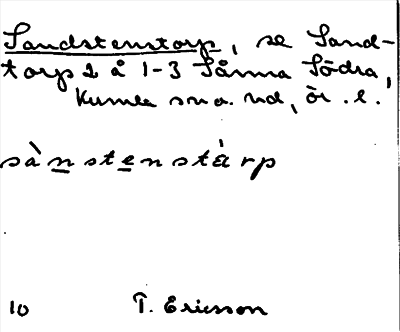 Sandstenstorp, se Sand-
torp 2 å 1-3 Sånna Södra,
Kumla sn o. hd, ör. l.
sànstenstàrp
10 T. Ericsson